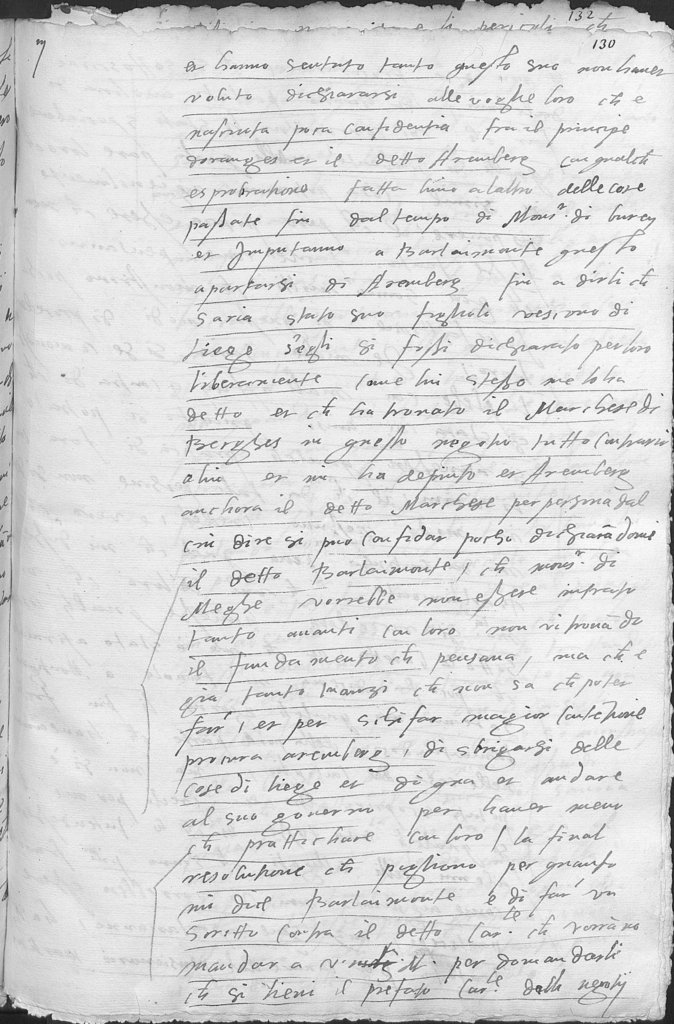 132
130
et hanno sentuto tanto questo suo non haver
voluto dichiararsi alle voglie loro ch e
nascuta poca confidentia fra il principe
doranges et il detto Aremberg con qualch
esprobratione fatta luno alaltro delle cose
passate fin dal tempo di Monsr. di buren
et Imputanno a Barlaimonte questo
apartarsi di Aremberg fin a dirli ch
saria stato suo figliolo vescovo di
Liege s'egli si fussi dichiarato per loro
liberamente come lui stesso me lo ha
detto et ch ha trovato il Marchese di
Berghes in questo negotio tutto contrario
a lui et mi ha depinto et Aremberg
anchora il detto Marchese per persona dal
cui dire si puo confidar pocho dichiarandomi
il detto Barlaimonte, ch monsr. di
Meghe vorrebbe non essere intrato
tanto avanti con loro non vi trovando
il fundamento ch pensava, ma ch e
gia tanto inanzi ch non sa ch poter
far, et per schifar magior contentione
procura aremberg, di sbrigarsi delle
cose di liege et di qua et andare
al suo governo per haver meno
ch pratticare con loro, la final
resolutione ch pigliono per quanto
mi dice Barlaimonte e di far un
scritto contra il detto Carle. ch vorrano
mandar a M. per domandarli
ch si lievi il prefato Carle. dalli negotij